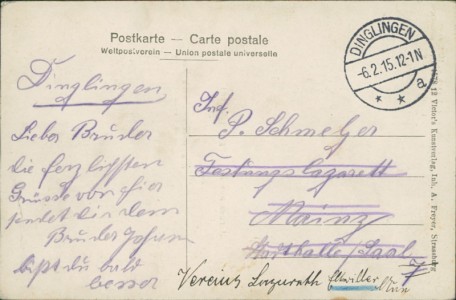 Postkarte — Carte postale
Weltpostverein — Union postale universelle
DINGLINGEN
-6.2.15.12-1N
a
Dinglingen
Lieber Bruder
die herzlichsten
Grüsse von hier
sendet dir dein
Bruder
bist du bald
besser
Inf.
P. Schmelzer
Festungslazarett
Mainz
Stadthalle/Saal
Vereins Lazarath Eltviller
Victor's Kunstverlag, Inh. A. Freyer, Strassburg